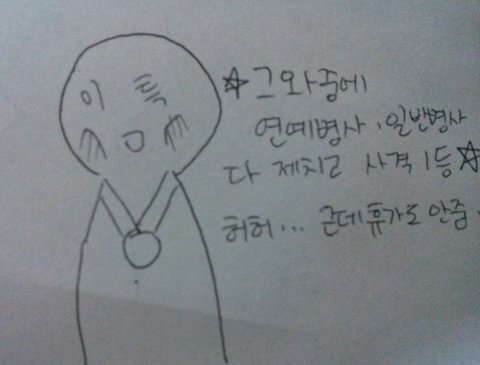 이 특
☆그와중에
연예병사·일반병사
다 제치고 사격 1등☆
허허... 근데 휴가도 안줌.